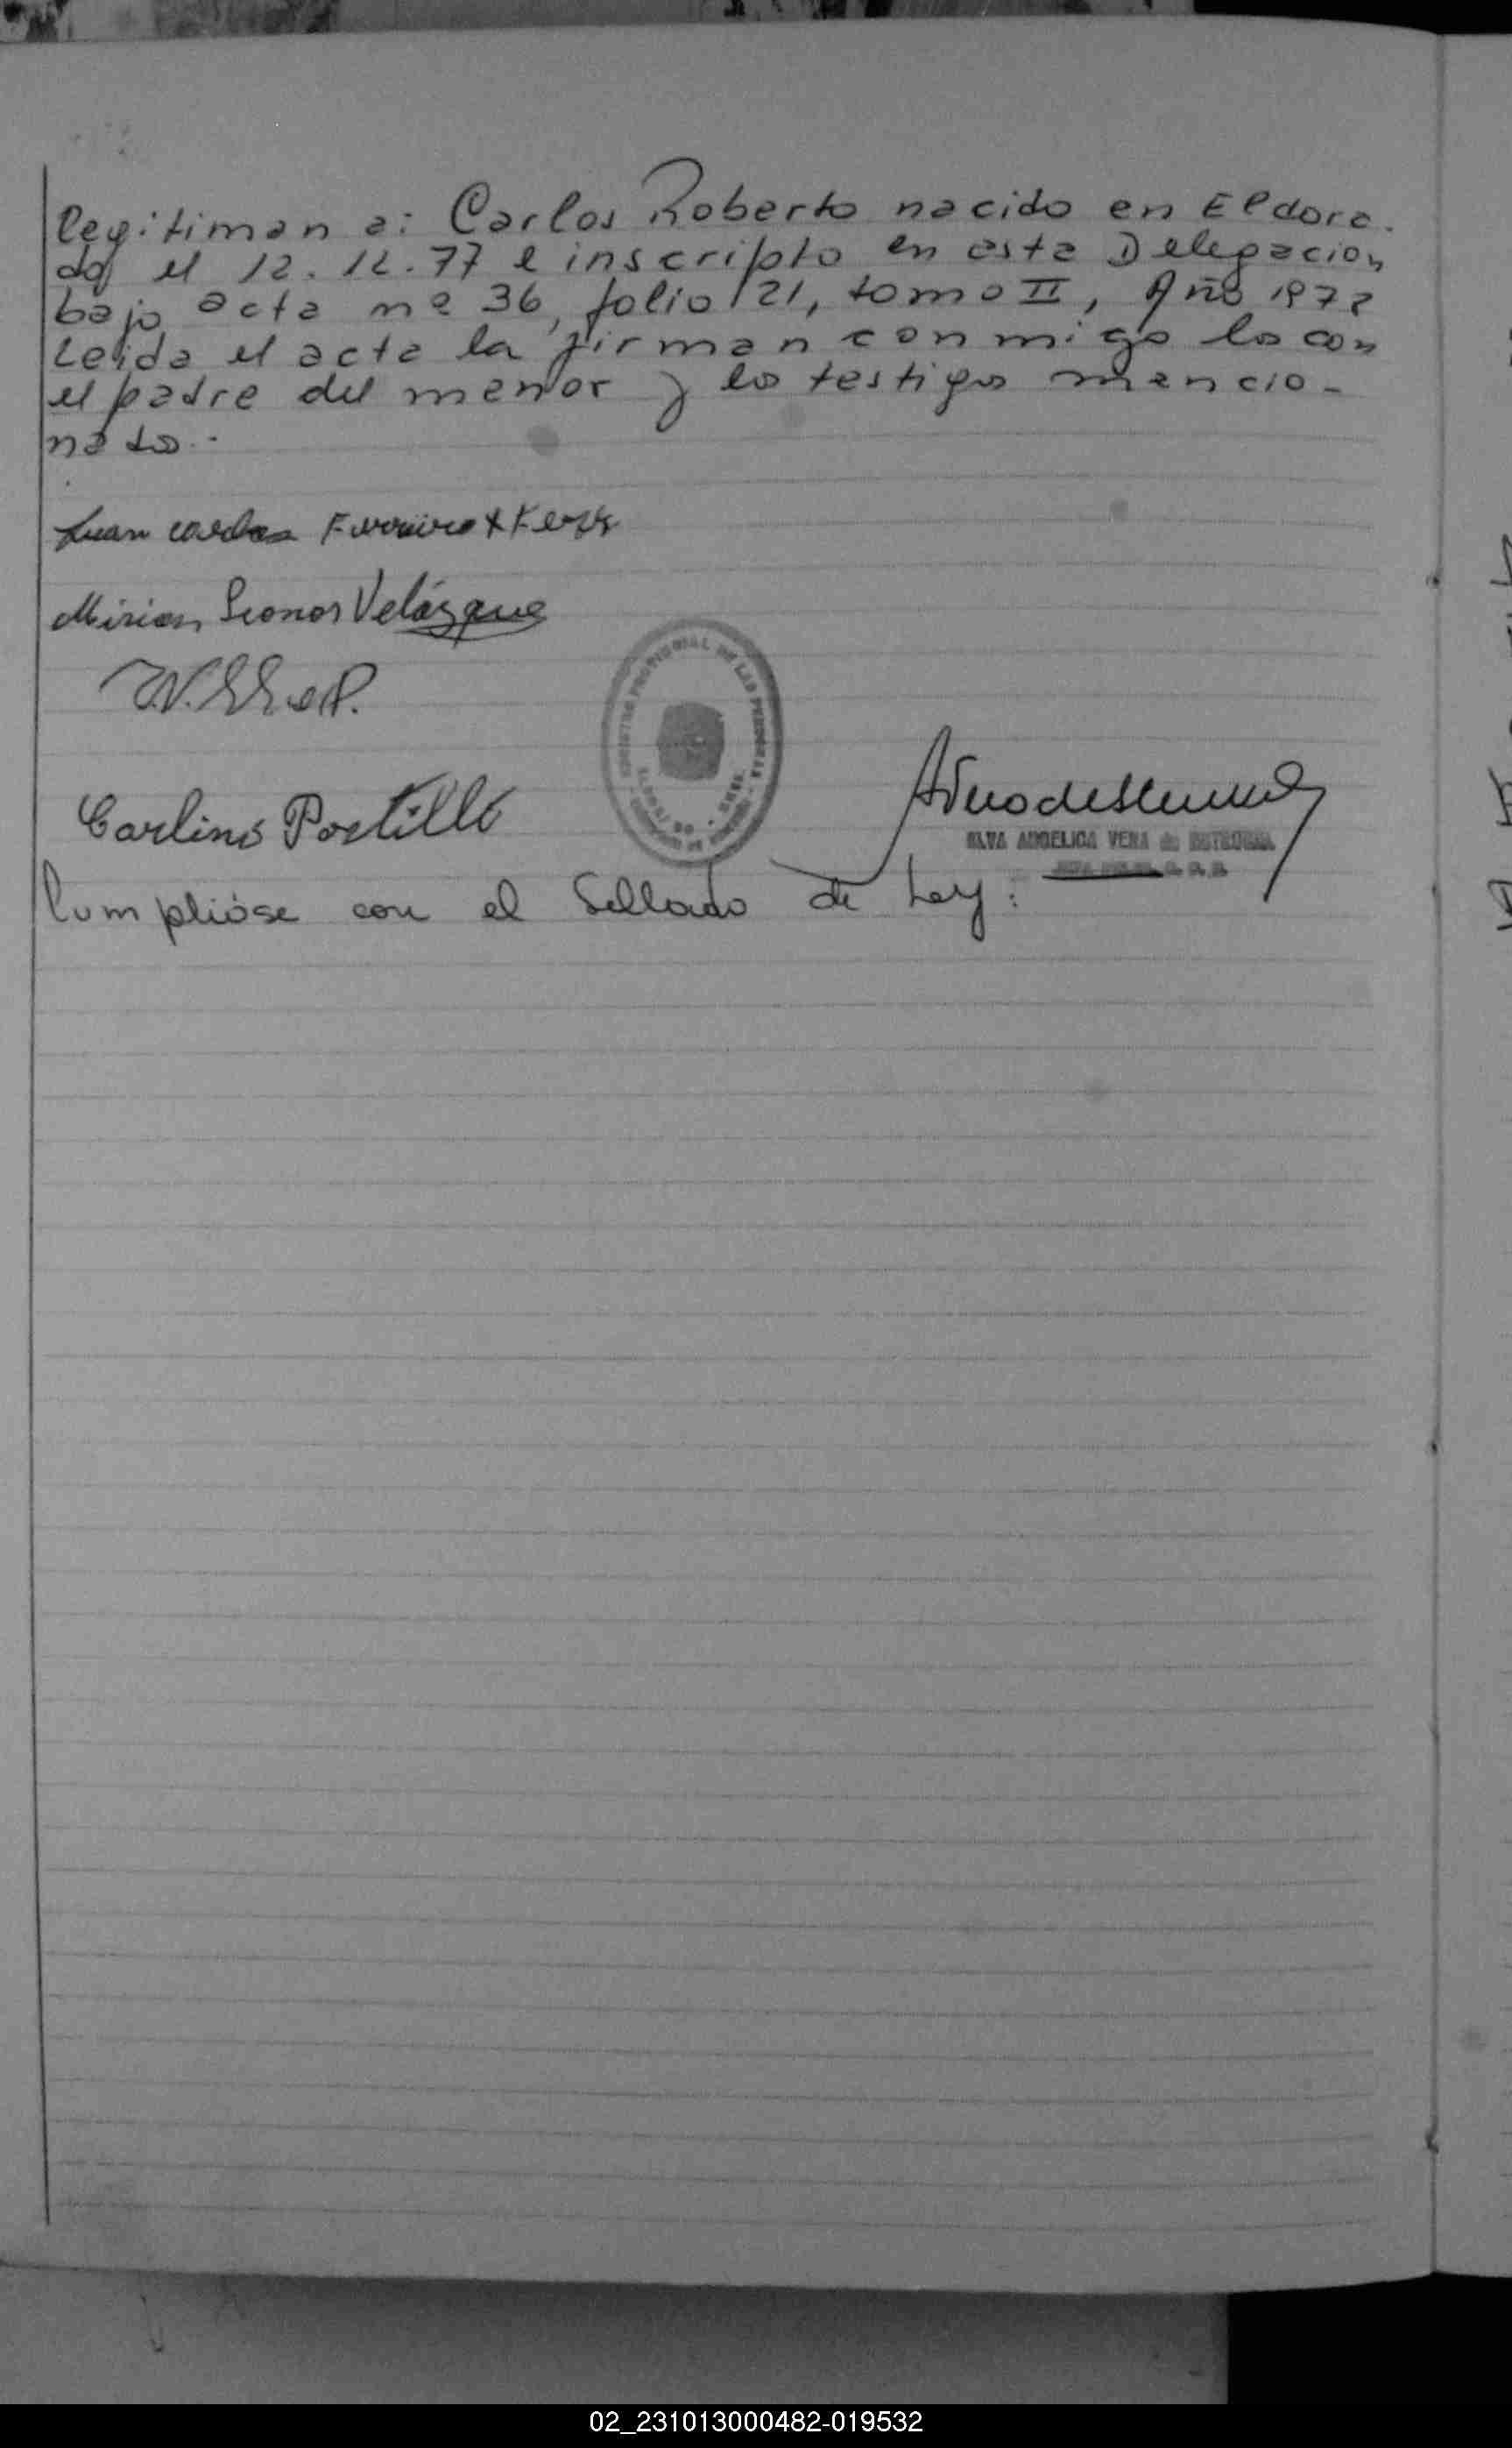 legitiman a: Carlos Roberto nacido en Eldora.
do el 12.12.77 e inscripto en esta Delegacion
bajo acta nº 36, folio 121, tomo II, Año 1978
Leida el acta la firman conmigo los con
el padre del menor y los testigos mencio-
nados.-
Juan Carlos Ferreira
Mirian Leonor Velázque
Carlino Portillo
REGISTRO PROVINCIAL DE LAS PERSONAS
ELVA ANGELICA VERA de
Cumplióse con el Sellado de Ley:
02_231013000482-019532